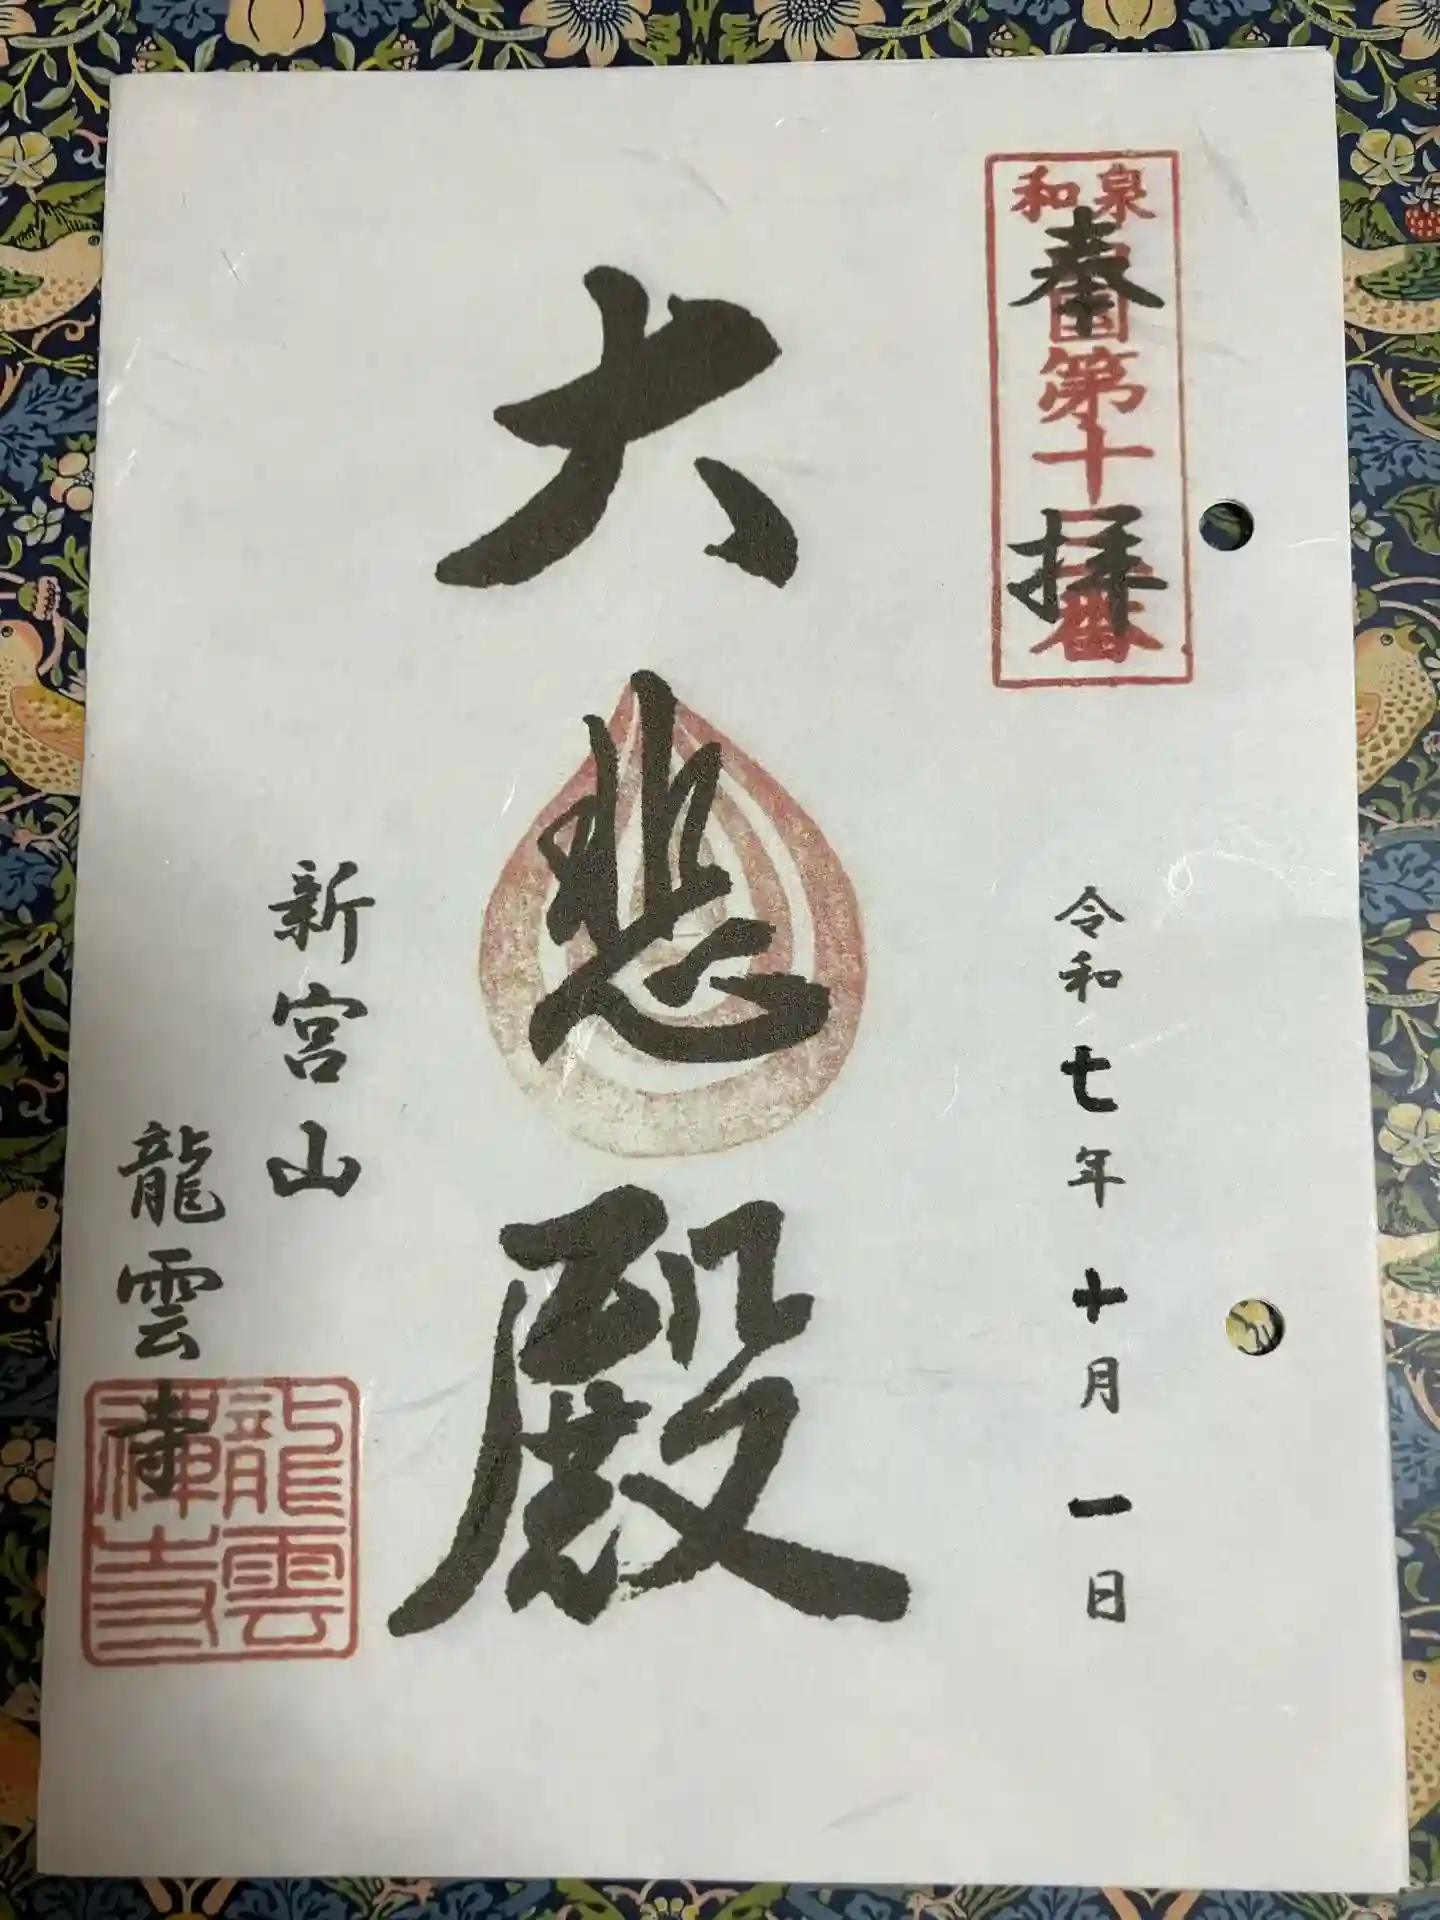 和泉
国第十番
奉拝
令和七年十月一日
大悲殿
新宮山
龍雲寺
龍雲
禅寺